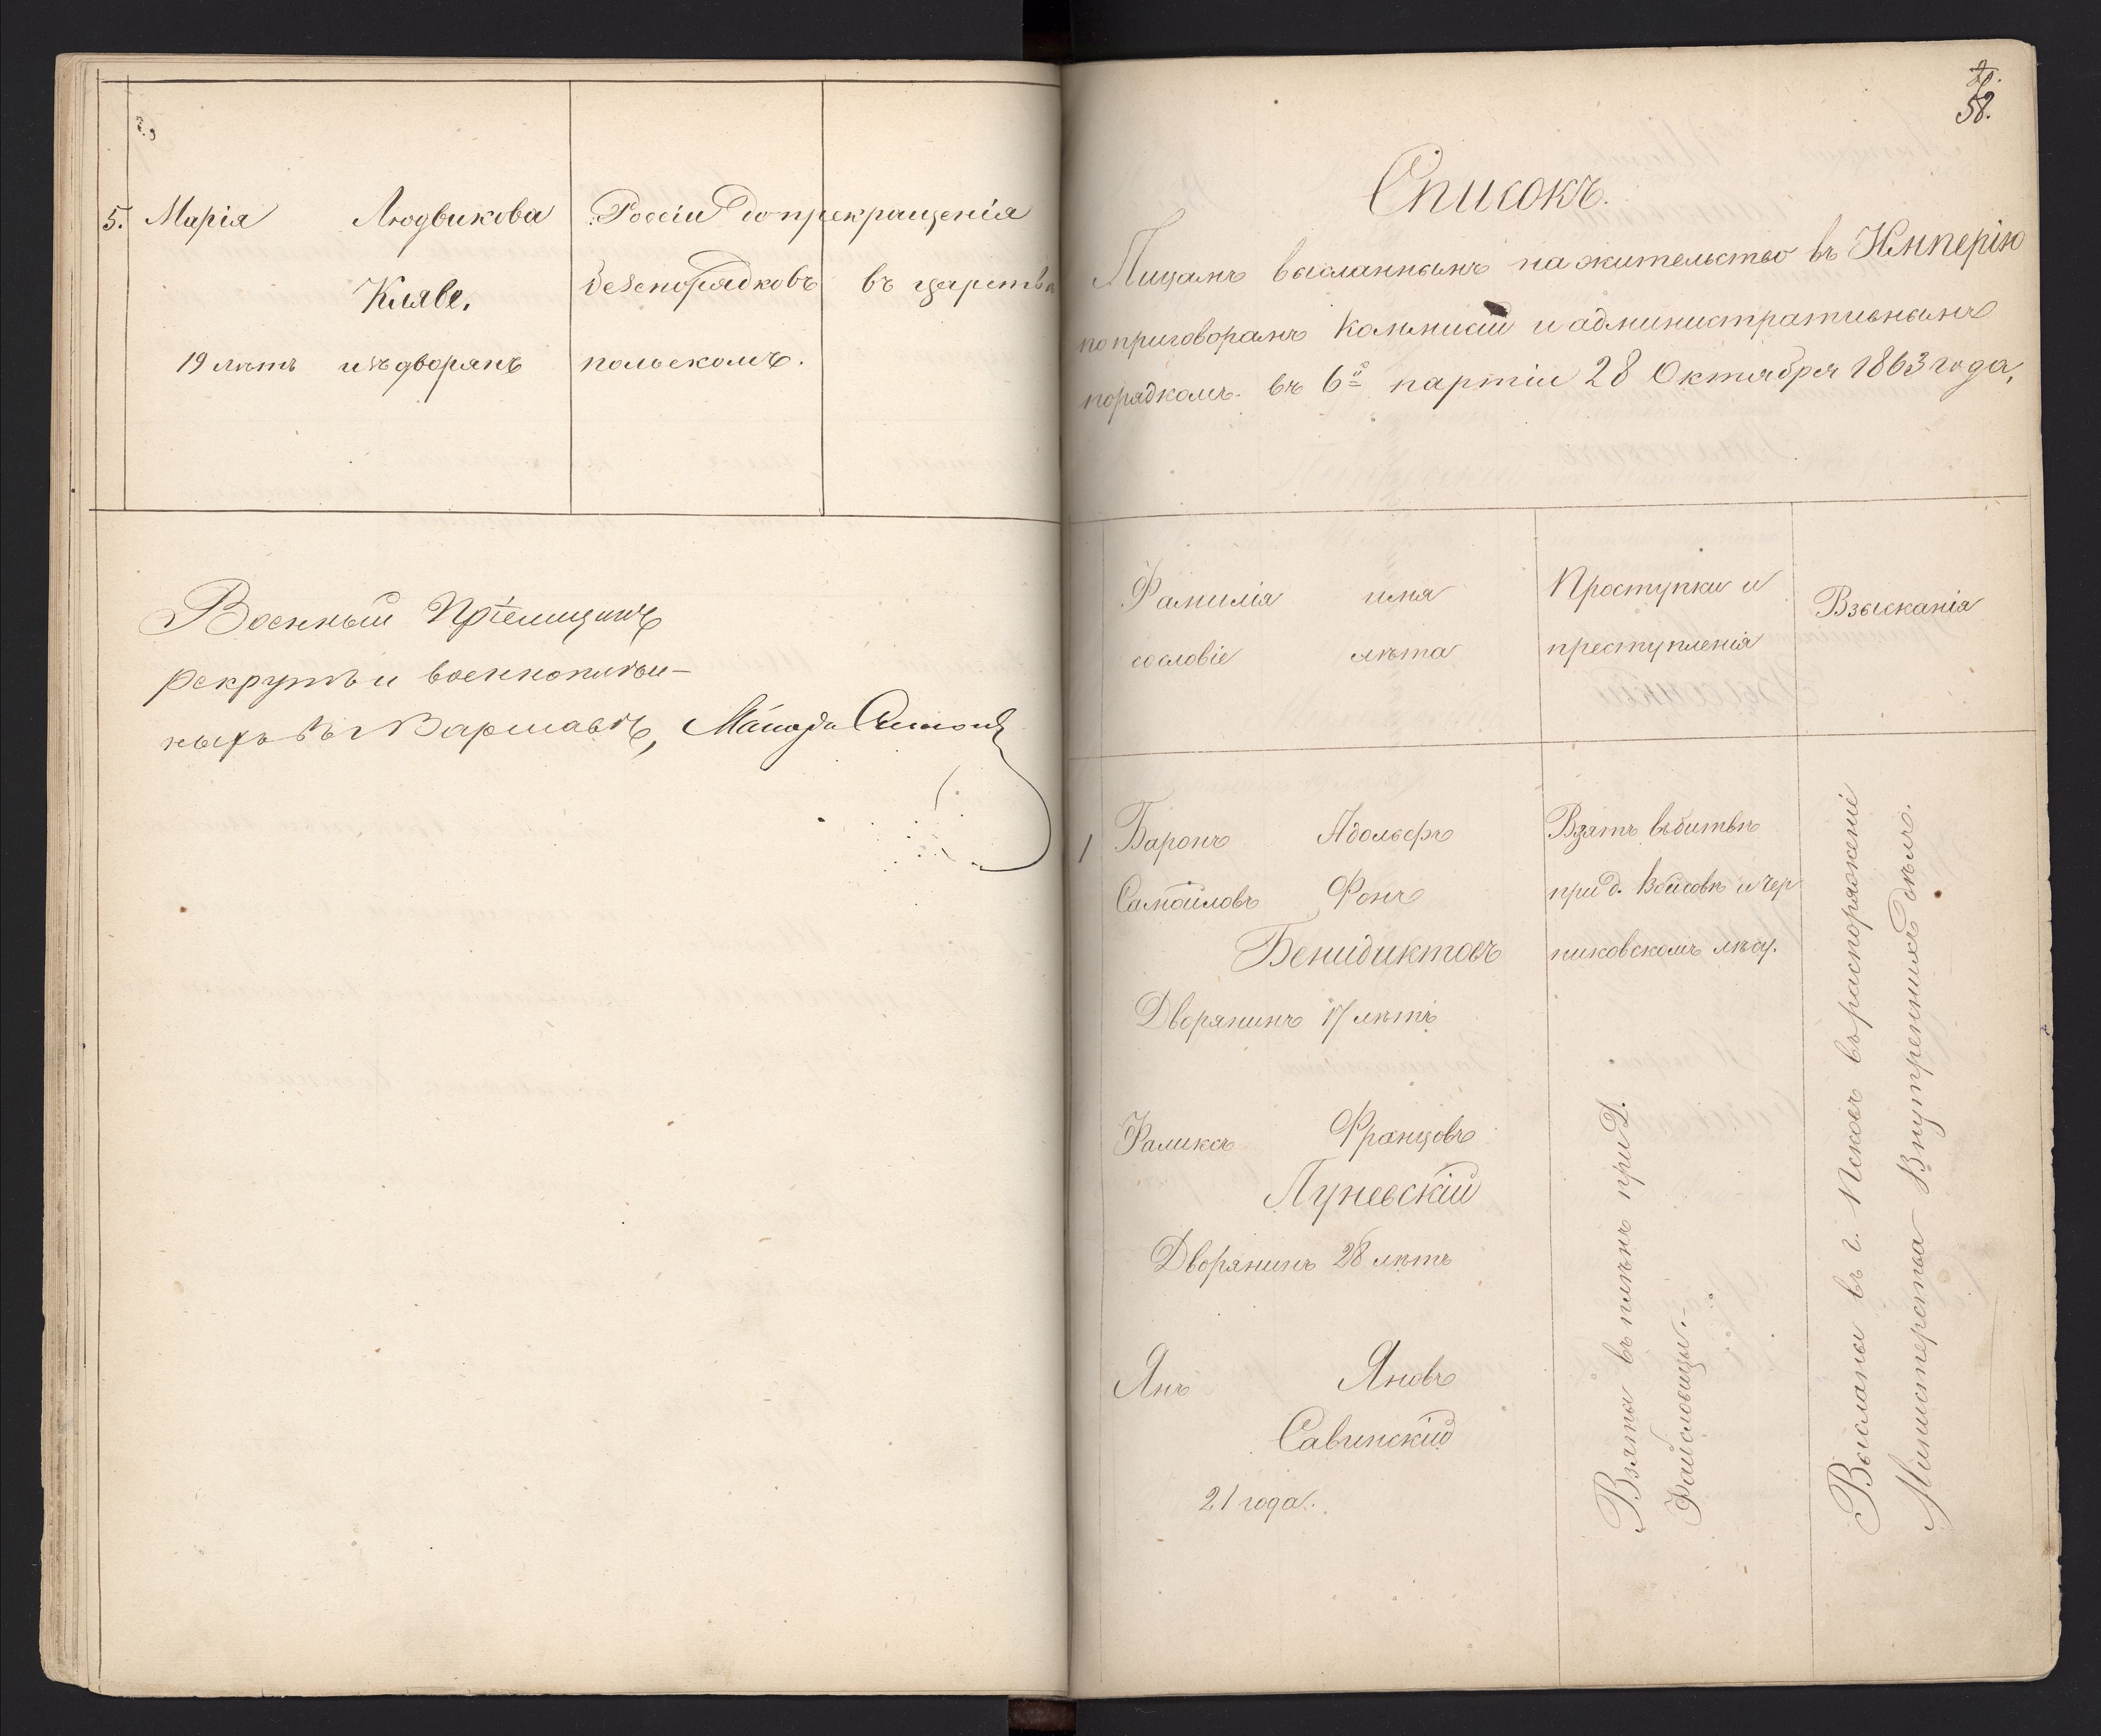 5. Марія Людвикова Россіи до прекращенія
Клаве, безпорядковъ въ царствѣ
19 лѣтъ изъ дворянъ польскомъ.
Военный Пріемщикъ
рекрутъ и военноплѣн-
ныхъ въ г. Варшавѣ,
58.
Списокъ.
Лицамъ высланнымъ на жительство въ Имперію
по приговорамъ Коммисій и административнымъ
порядкомъ въ 6й партіи 28 Октября 1863 года,
Фамилія имя
сословіе лѣта
Проступки и
преступленія
Взысканія
1 Баронъ Адольфъ
Самойловъ Фонъ
Бенидиктовъ
Дворянинъ 17 лѣтъ
Взятъ въ битвѣ
при д. и Чер
никовскомъ лѣсу.
Фаликсъ Францовъ
Луневскій
Дворянинъ 28 лѣтъ
Янъ Яновъ
Савинскій
21 года.
Взяты въ плѣнъ при Д.
Файсловицы.
Высланы въ г. Псковъ въ распоряженіе
Министерства Внутреннихъ дѣлъ.